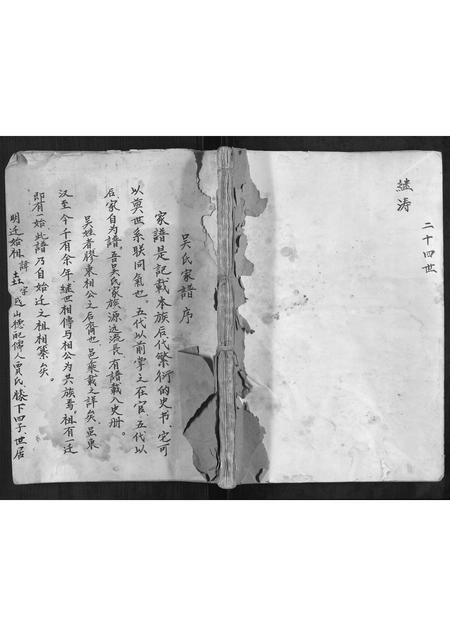 二十四世
继涛
吴氏家谱序
家谱是记载本族后代繁衍的史书,它可
以奠世系联同氣也。五代以前掌之在官,五代以
后家自为譜,吾吴氏家族源远流長有譜載入史册。
吴姓者膠東相公之后裔也,邑乘載之詳矣,盖東
汉至今千有余年继世相傳马相公为共族焉,祖有一迁
即有一始,此譜乃自始迁之祖相纂矣。
明迁始祖諱 字 山德配儒人賈氏膝下四子世居